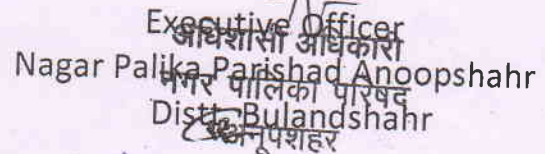 Executive Officer
अधिशासी अधिकारी
Nagar Palika Parishad Anoopshahr
नगर पालिका परिषद
Distt. Bulandshahr
अनूपशहर